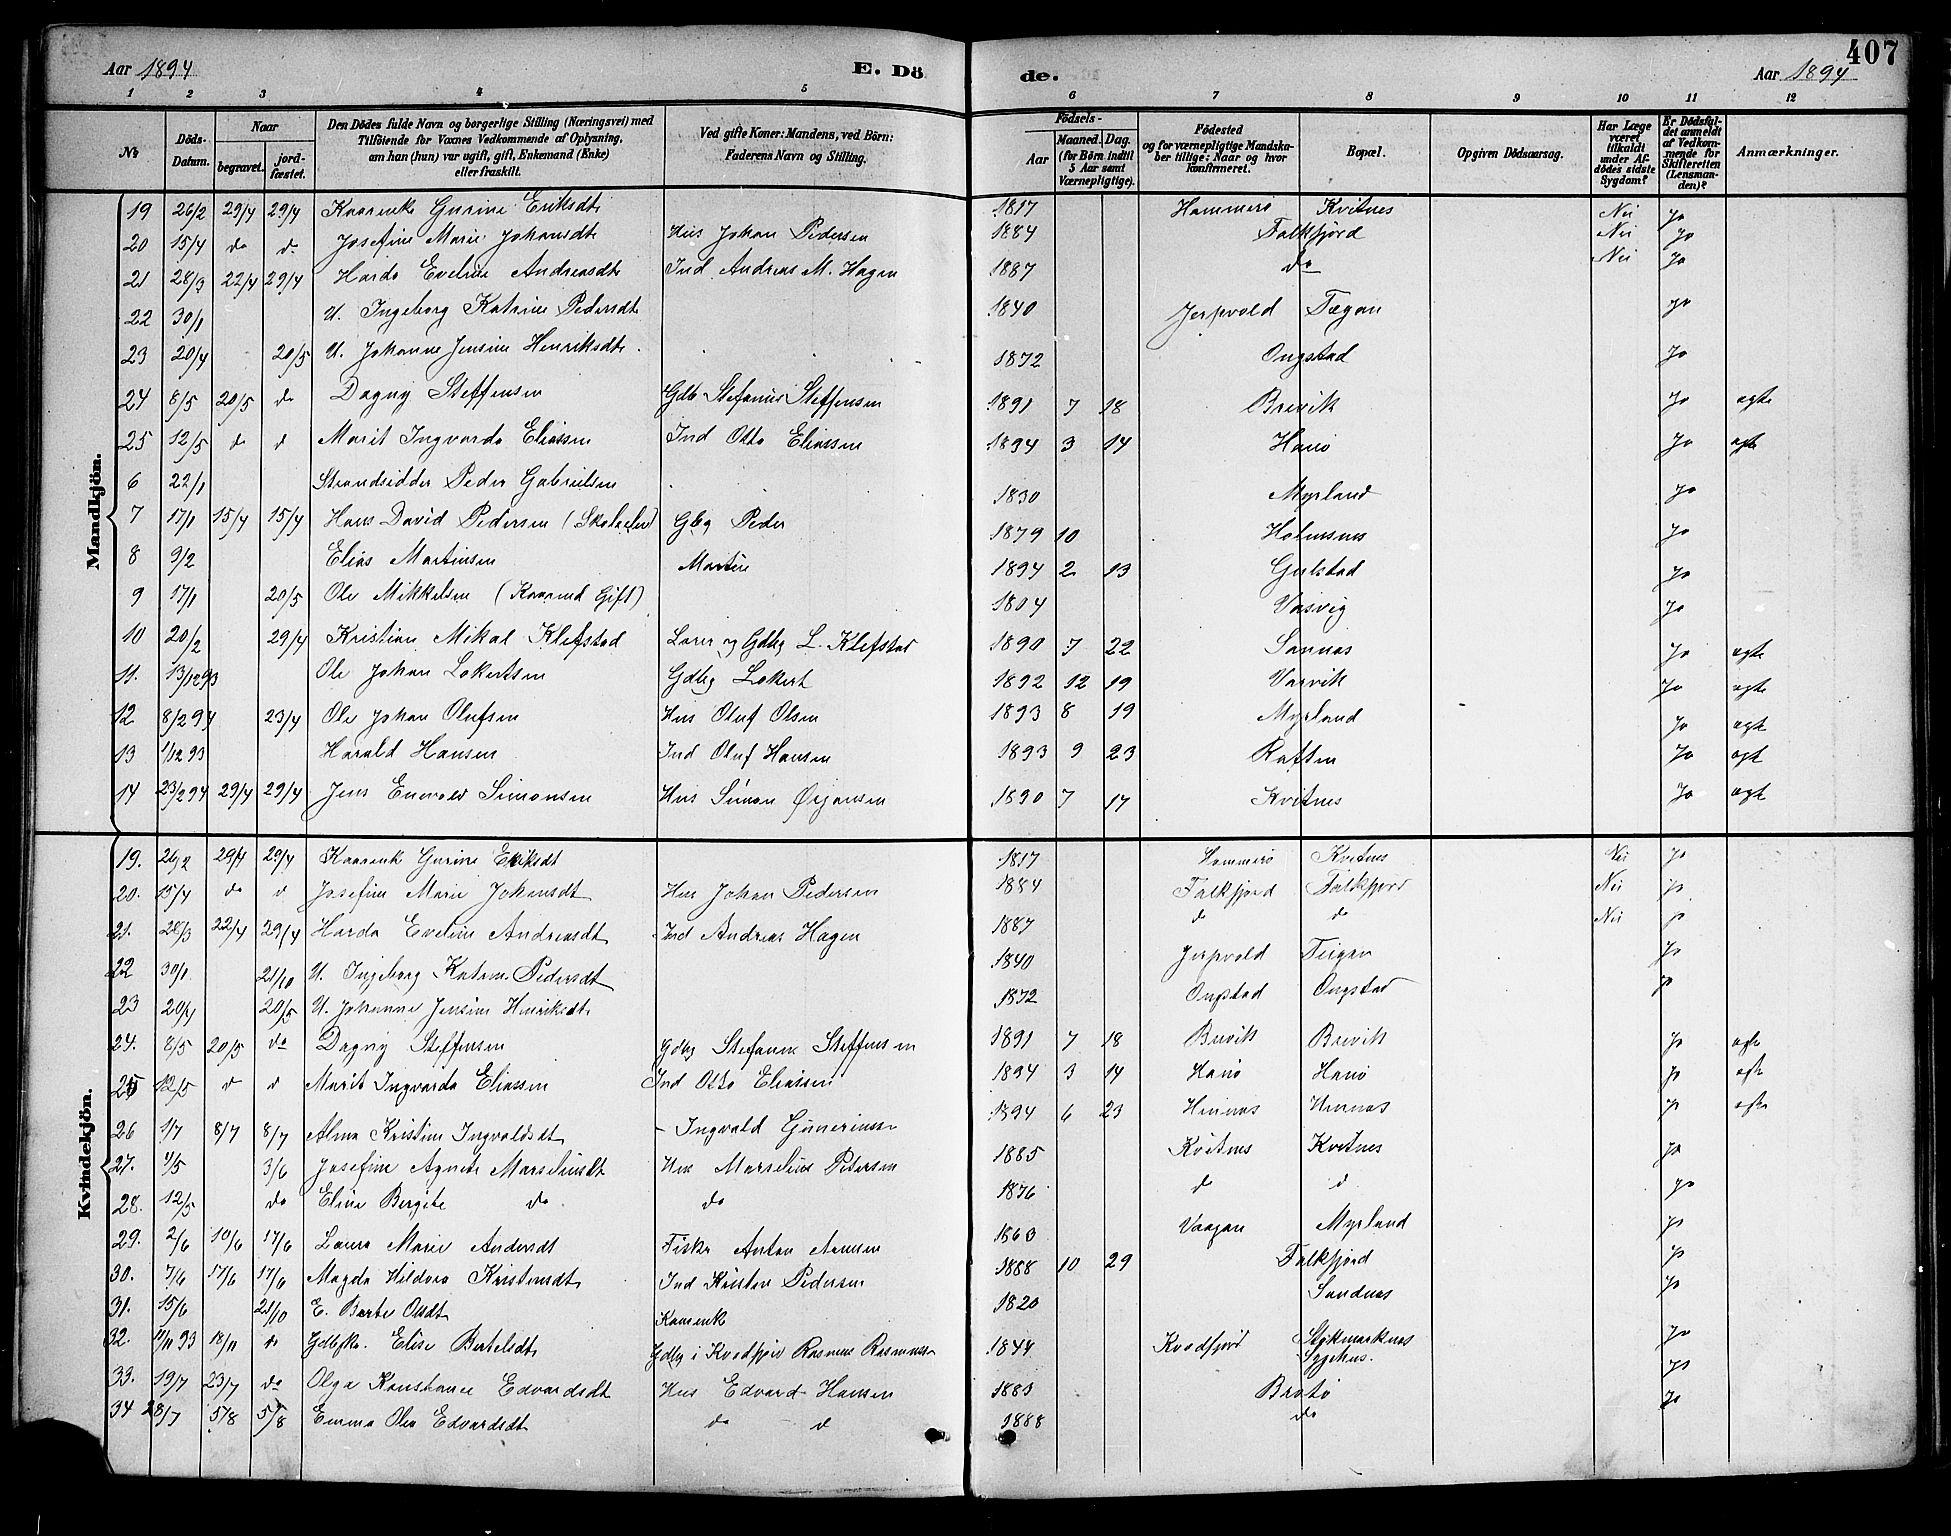 407
Aar 1894 E. Dö de. Aar 1894
1 2 3 4 5 6 7 8 9 10 11 12
№ Döds-Datum. Naar begravet. jord-fæstet. Den Dödes fulde Navn og borgerlige Stilling (Næringsvei) med Tilföiende for Voxnes Vedkommende af Oplysning, om han (hun) var ugift, gift, Enkemand (Enke) eller fraskilt. Ved gifte Koner: Mandens, ved Börn: Faderens Navn og Stilling. Födsels- Aar Maaned. Dag. (for Börn indtil 5 Aar samt Værnepligtige). Födested og for værnepligtige Mandska-ber tillige: Naar og hvor konfirmeret. Bopæl. Opgiven Dödsaarsag. Har Læge været tilkaldt under Af-dödes sidste Sygdom? Er Dödsfal-det anmeldt af Vedkom-mende for Skifteretten (Lensman-den)? Anmærkninger.
Mandkjön.
19 26/2 29/4 29/4 Kaarenke Gurine Eriksdt 1817 Hammerø Kvitnes Nei Jo
20 15/4 do d. Josefine Marie Johansdt Hus Johan Pedersen 1884 Falkfjord Nei Jo
21 28/3 22/4 29/4 Harda Eveline Andreasdt Ind Andreas M. Hagen 1887 do Nei Jo
22 30/1 U. Ingeborg Katrine Pedersdt 1840 Jerpvold Tegan Jo
23 20/4 20/5 U. Johanne Jensine Henriksdt. 1872 Ongstad Jo
24 8/5 20/5 do Dagny Steffensen Gdb Stefanus Steffensen 1891 7 18 Brevik Jo agte
25 12/5 do d Marit Ingvarda Eliassen Ind Otto Eliassen 1894 3 14 Hanø Jo agte
6 22/1 Strandsidder Peder Gabrielsen 1830 Myrland Jo
7 17/1 15/4 15/4 Hans David Pedersen (Skoleelev) Gbg Peder 1879 10 Holmsnes Jo
8 9/2 Elias Martinsen Martin 1894 2 13 Gulstad Jo
9 17/1 20/5 Ole Mikkelsen (Kaarmd Gift) 1804 Vasvig Jo
10 20/2 29/4 Kristian Mikal Klefstad Lærer og Gdbg L. Klefstad 1890 7 22 Sannas Jo agte
11. 13/12 93 Ole Johan Lokertsen Gdbg Lokert 1892 12 19 Varvik Jo agte
12 8/2 94 23/4 Ole Johan Olufsen Hus Oluf Olsen 1893 8 19 Myrland Jo agte
13 1/12 93 Harald Hansen Ind Oluf Hansen 1893 9 23 Raften Jo agt
14 23/2 94 29/4 29/4 Jens Enevald Simonsen Hus Simon Ørjansen 1890 7 17 Kvitnes Jo agt
Kvindekjön.
19. 26/2 29/4 29/4 Kaarenk Gurine Eriksdt 1817 Hammerø Kvitnes Nei Jo
20. 15/4 do d Josefine Marie Johansdt Hus Johan Pedersen 1884 Falkfjord Falkfjord Nei jo
21. 28/3 22/4 29/4 Harda Eveline Andreasdt Ind Andreas Hagen 1887 do do Nei jo
22 30/1. 21/10 U. Ingeborg Katrine Pedersdt 1840 Jerpvold Teigan Jo
23 20/4 20/5 U. Johanne Jensine Henriksdt. 1872 Ongstad Ongstad jo
24. 8/5 20/5 do Dagny Steffensen Gdbg Stefanus Steffensen 1891 7 18 Brevik Brevik jo agte
25 12/5 d d Marit Ingvarda Eliassen Ind Otto Eliassen 1894 3 14 Hanø Hanø jo agte
26 1/7 8/7 8/7 Alma Kristine Ingvaldsdt - Ingvald Gunerius 1894 6 23 Hennes Hennes jo agte
27. 4/5 3/6 Josefine Agnete Marseliusdt Hus Marselius Petersen 1885 Kvitnes Kvitnes jo
28. 12/5 do Eline Bergite do do 1876 do d jo
29. 2/6 10/6 17/6 Laura Marie Andersdt Fisker Anton 1863 Vaagan Myrland jo
30. 7/6 17/6 17/6 Magda Hildora Kristensdt Ind Kristen Pedersen 1888 10 29 Falkfjord jo
31. 15/6 21/10 E. Berte Olsdt Kaarenk 1820 Sandnes jo
32. 11/11 93 18/11 do Gdbsk. Elise Bertelsdt Gdbg i Kvedfjor Rasmus Rasmussen 1844 Kvedfjord Stokmarknes Sygehus. Jo
33. 19/7 23/7 do Olga Konstanse Edvardsdt Hus Edvard Hansen 1883 Brotø jo
34 28/7 5/8 5/8 Emma Olea Edvardsdt do d 1888 do Jo